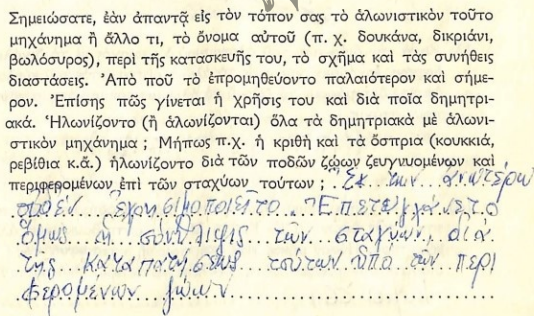 Σημειώσατε, ἐὰν ἀπαντᾷ εἰς τὸν τόπον σας τὸ ἁλωνιστικὸν τοῦτο
μηχάνημα ἢ ἄλλο τι, τὸ ὄνομα αὐτοῦ (π. χ. δουκάνα, δικριάνι,
βωλόσυρος), περὶ τῆς κατασκευῆς του, τὸ σχῆμα καὶ τὰς συνήθεις
διαστάσεις. Ἀπὸ ποῦ τὸ ἐπρομηθεύοντο παλαιότερον καὶ σήμε-
ρον. Ἐπίσης πῶς γίνεται ἡ χρῆσις του καὶ διὰ ποῖα δημητρι-
ακά. Ἡλωνίζοντο (ἢ ἁλωνίζονται) ὅλα τὰ δημητριακὰ μὲ ἁλωνι-
στικὸν μηχάνημα ; Μήπως π.χ. ἡ κριθὴ καὶ τὰ ὄσπρια (κουκκιά,
ρεβίθια κ.ἄ.) ἡλωνίζοντο διὰ τῶν ποδῶν ζῴων ζευγνυομένων καὶ
περιφερομένων ἐπὶ τῶν σταχύων τούτων ; Ἐκ των ανωτέρω
οὐδὲν ἐχρησιμοποιεῖτο. Ἐπετυγχάνετο
ὅμως ἡ σύνθλιψις τῶν σταχυων διὰ
της καταπατήσεως τούτων ὑπὸ τῶν περι
φερομένων ζώων